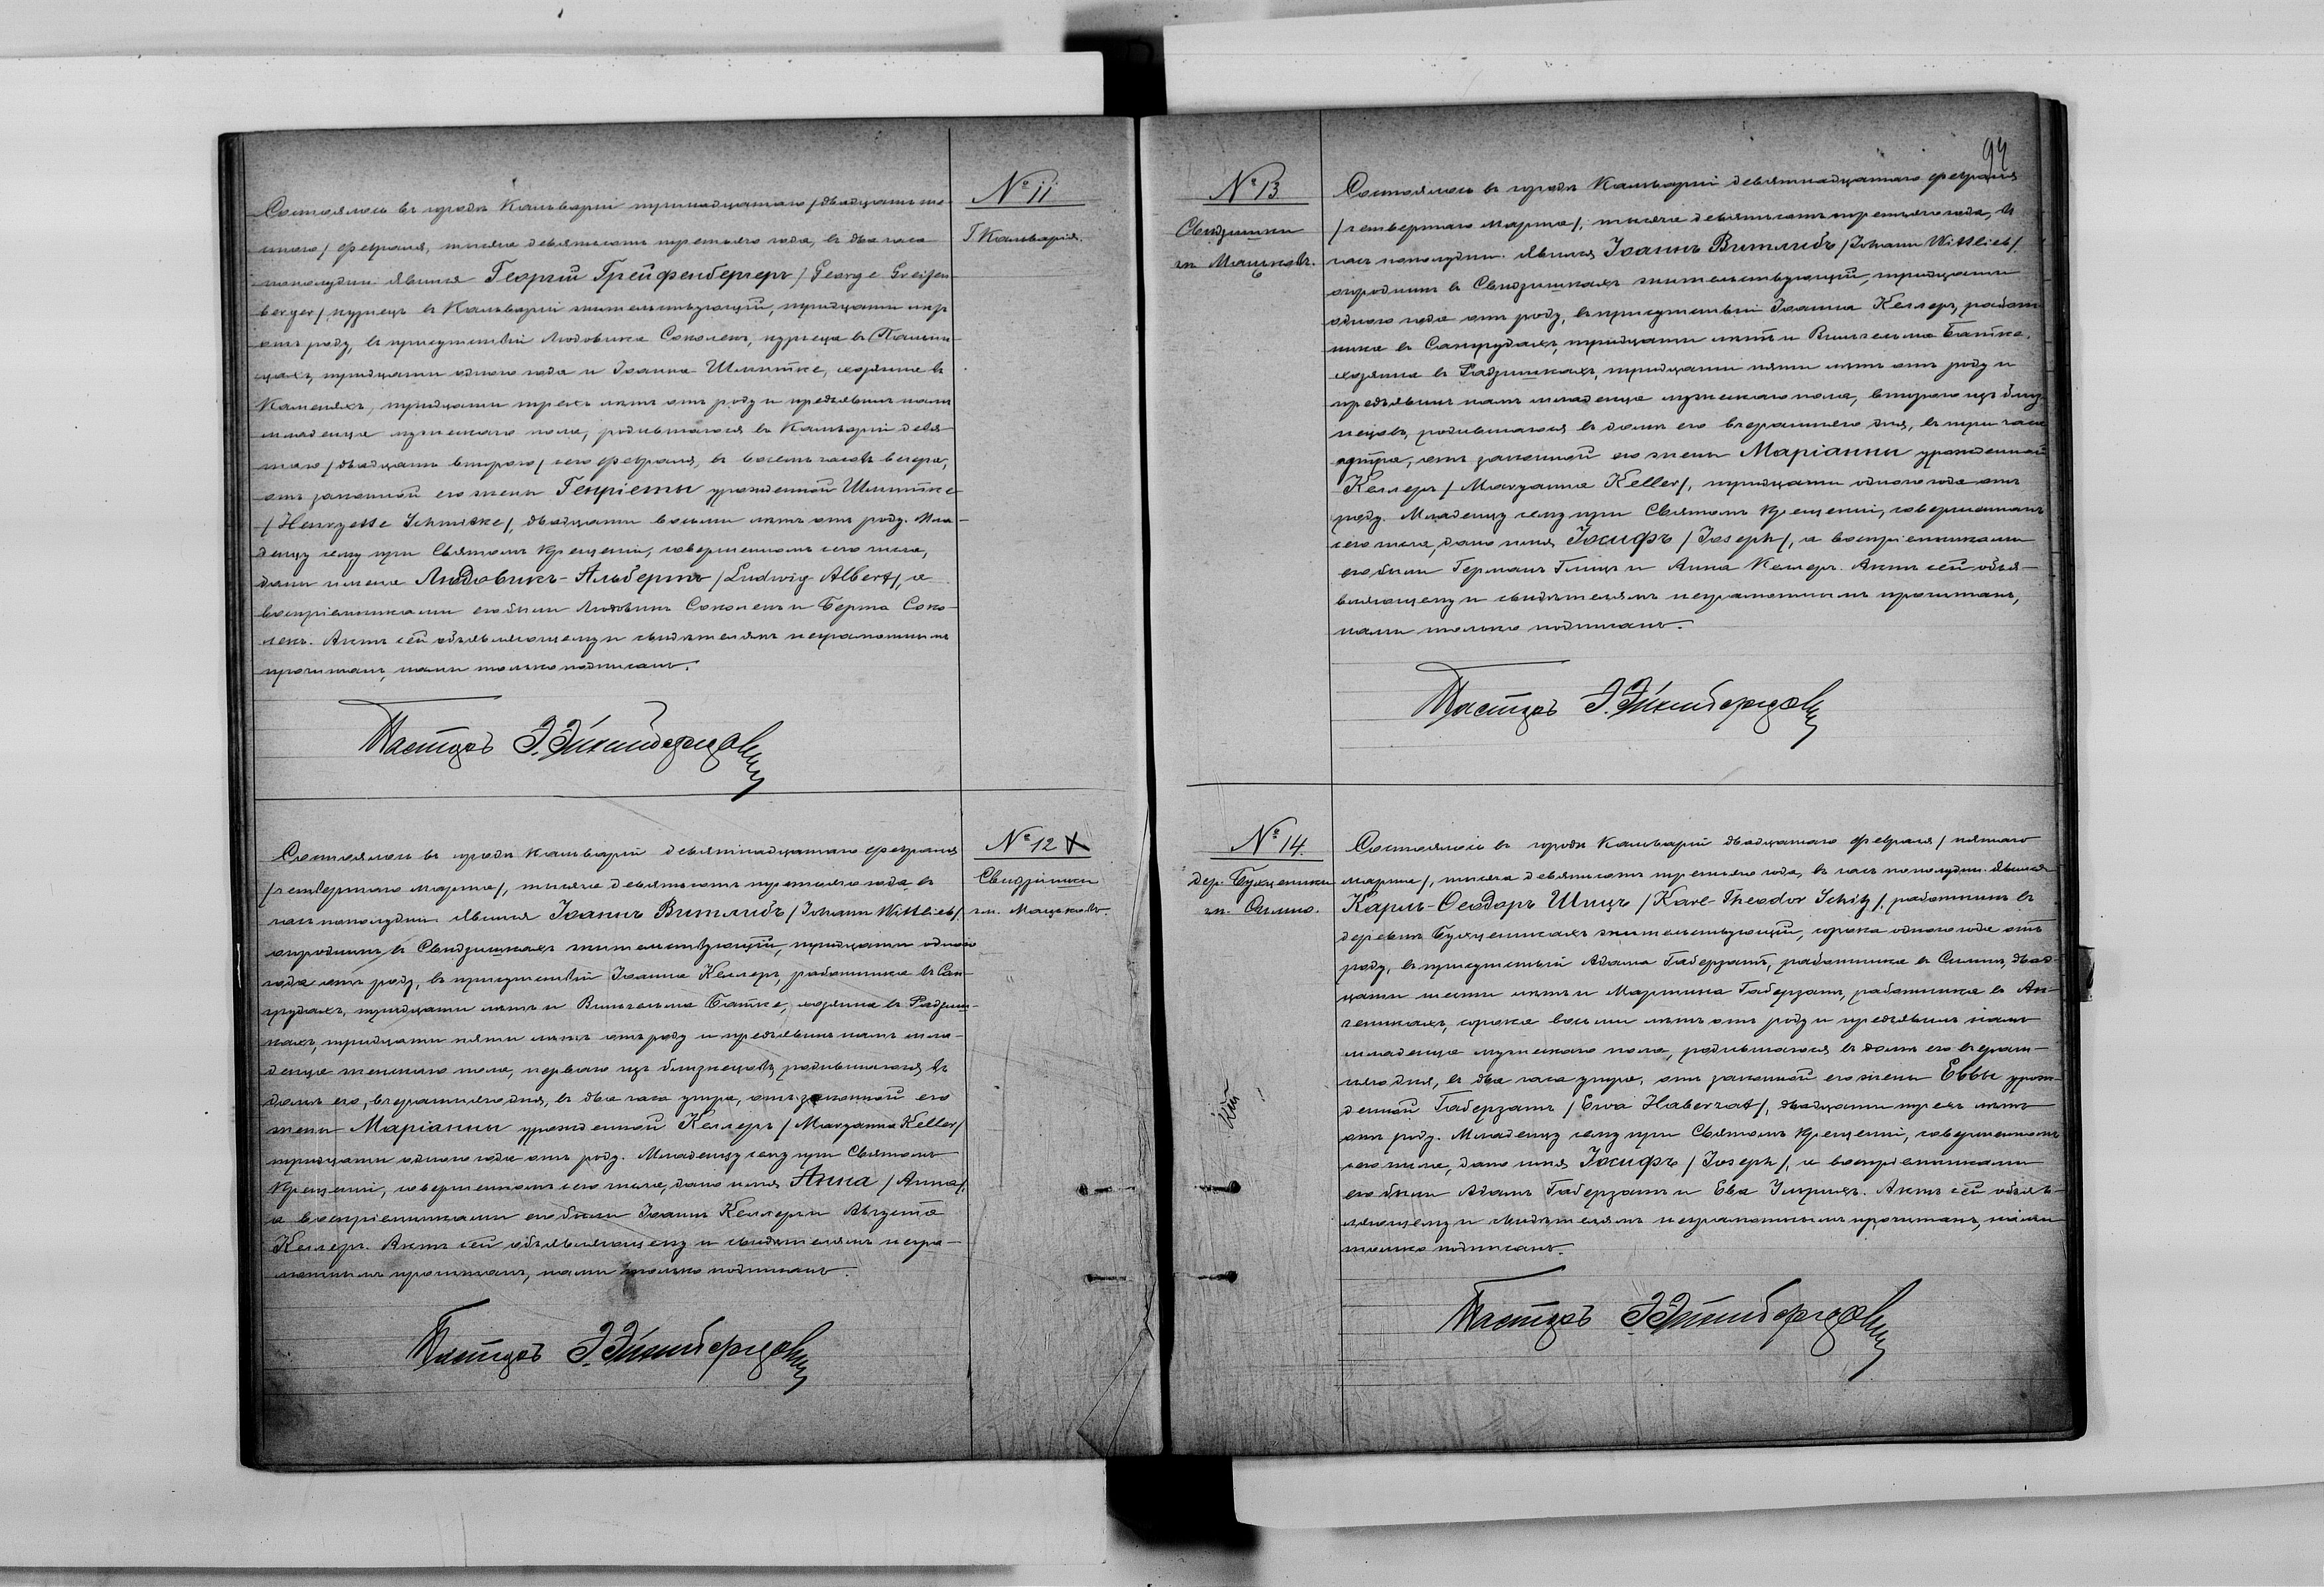 № 11
Г. Кальварія.
Состоялось въ городѣ Кальваріи тринадцатаго /двадцать ше-
стого/ февраля, тысяча девятьсотъ третьяго года, въ два часа
пополудни. Явился Георгій Грейфенбергеръ /George Greifen-
berger/ кузнецъ въ Кальваріи жительствующій, тридцати лѣтъ
отъ роду, въ присутствіи Людовика Соколекъ, кузнеца въ
тридцати одного года и Іоанна Шмитке, хозяина въ
тридцати трехъ лѣтъ отъ роду и предъявилъ намъ
младенца мужескаго пола, родившагося въ Кальваріи девя-
таго /двадцать второго/ сего февраля, въ восемь часовъ вечера,
отъ законной его жены Генріеты урожденной Шмитке
/Henryette Schmitke/, двадцати восьми лѣтъ отъ роду. Мла-
денцу сему при Святомъ Крещеніи, совершенномъ сего числа,
даны имена Людовикъ-Альбертъ /Ludwig Albert/, а
воспріемниками его были Людовикъ Соколекъ и Берта Соко-
лекъ. Актъ сей объявляющему и свидѣтелямъ неграмотнымъ
прочитанъ, нами только подписанъ.
Пасторъ
№ 12 X
Свидзишки
гм. Мацьковъ.
Состоялось въ городѣ Кальваріи девятнадцатаго февраля
/четвертаго марта/, тысяча девятьсотъ третьяго года, въ
часъ пополудни. Явился Іоаннъ Витлибъ /Johann Wittlieb/
огородникъ въ Свидзишкахъ жительствующій, тридцати одного
года отъ роду, въ присутствіи Іоанна Келлеръ, работника въ Сан-
грудахъ, тридцати лѣтъ и Вильгельма Батке, хозяина въ Радзиш-
кахъ, тридцати пяти лѣтъ отъ роду и предъявилъ намъ мла-
денца женскаго пола, перваго изъ близнецовъ, родившагося въ
домѣ его, вчерашняго дня, въ два часа утра, отъ законной его
жены Маріанны урожденной Келлеръ /Maryanna Keller/
тридцати одного года отъ роду. Младенцу сему при Святомъ
Крещеніи, совершенномъ сего числа, дано имя Анна /Anna/,
а воспріемниками его были Іоаннъ Келлеръ и Августа
Келлеръ. Актъ сей объявляющему и свидѣтелямъ негра-
мотнымъ прочитанъ, нами только подписанъ.
Пасторъ
94
№ 13
Свидзишки
гм. Мацьковъ.
Состоялось въ городѣ Кальваріи девятнадцатаго февраля
/четвертаго марта/, тысяча девятьсотъ третьяго года, въ
часъ пополудни. Явился Іоаннъ Витлибъ /Johann Wittlieb/
огородникъ въ Свидзишкахъ жительствующій, тридцати
одного года отъ роду, въ присутствіи Іоанна Келлеръ, работ-
ника въ Сангрудахъ, тридцати лѣтъ и Вильгельма Батке,
хозяина въ Радзишкахъ, тридцати пяти лѣтъ отъ роду и
предъявилъ намъ младенца мужескаго пола, второго изъ близ-
нецовъ, родившагося въ домѣ его вчерашняго дня, въ три часа
утра, отъ законной его жены Маріанны урожденной
Келлеръ /Maryanna Keller/, тридцати одного года отъ
роду. Младенцу сему при Святомъ Крещеніи, совершенномъ
сего числа, дано имя Іосифъ /Joseph/, а воспріемниками
его были Германъ и Анна Келлеръ. Актъ сей объя-
вляющему и свидѣтелямъ неграмотнымъ прочитанъ,
нами только подписанъ.
Пасторъ
№ 14.
дер.
гм. Симно.
Состоялось въ городѣ Кальваріи двадцатаго февраля /пятаго
марта/, тысяча девятьсотъ третьяго года, въ часъ пополудни. Явился
Карлъ-Ѳеодоръ Шицъ /Karl-Theodor Schitz/, работникъ въ
деревнѣ жительствующій, сорока одного года отъ
роду, въ присутствіи Адама Габерзатъ, работника въ Симнѣ, двад-
цати шести лѣтъ и Мартина Габерзатъ, работника въ
сорока восьми лѣтъ отъ роду и предъявилъ намъ
младенца мужескаго пола, родившагося въ домѣ его вчераш-
няго дня, въ два часа утра, отъ законной его жены Еввы урож-
денной Габерзатъ /Ewa Haberzat/, двадцати трехъ лѣтъ
отъ роду. Младенцу сему при Святомъ Крещеніи, совершенномъ
сего числа, дано имя Іосифъ /Joseph/, а воспріемниками
его были Адамъ Габерзатъ и Ева Актъ сей объяв-
ляющему и свидѣтелямъ неграмотнымъ прочитанъ, нами
только подписанъ.
Пасторъ